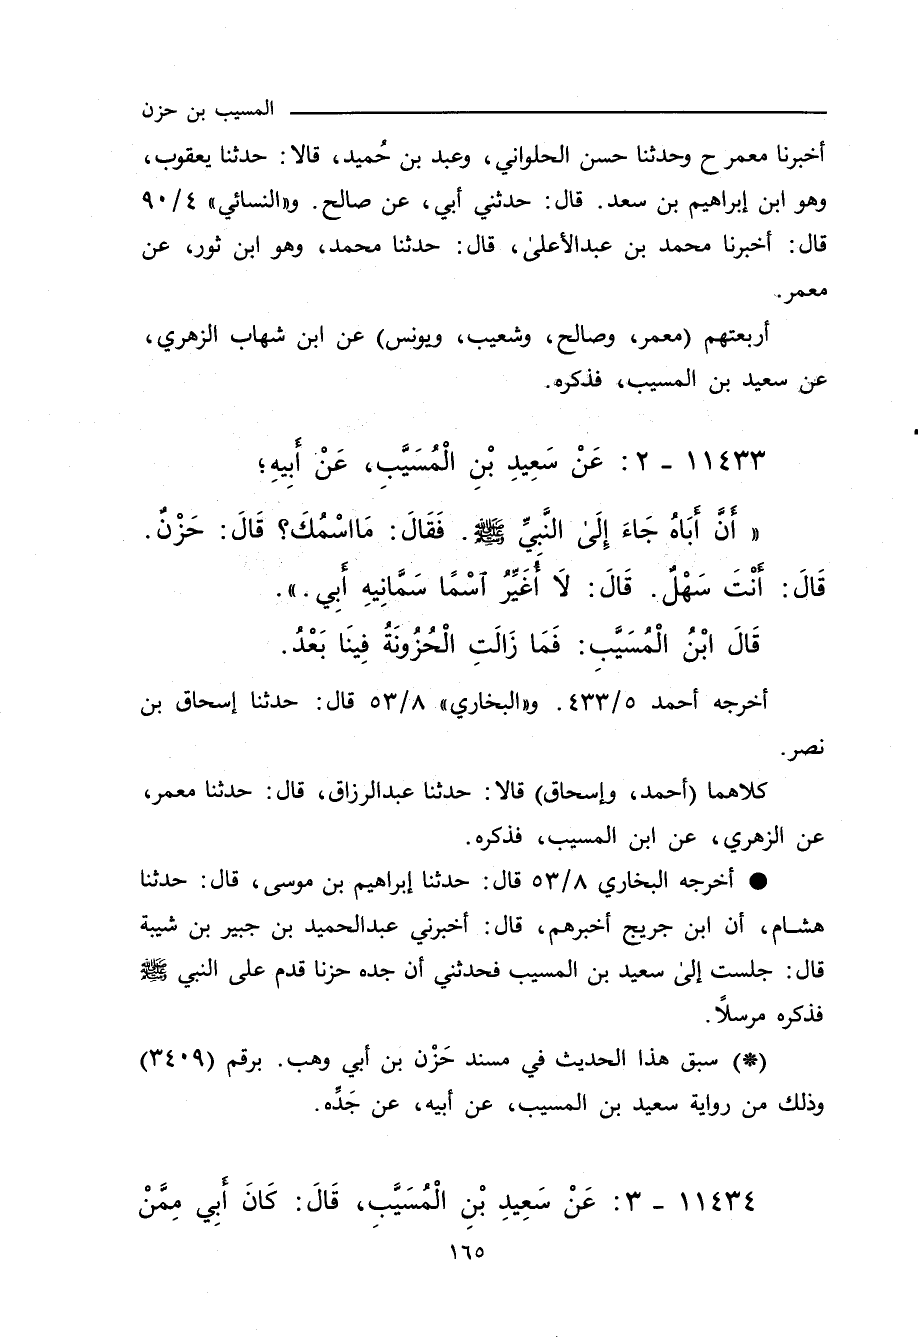 المسيب بن حزن
أخبرنا معمر ح وحدثنا حسن الحلواني، وعبد بن حُميد، قالا: حدثنا يعقوب،
وهو ابن إبراهيم بن سعد. قال: حدثني أبي، عن صالح. و«النسائي» ٩٠/٤
قال: أخبرنا محمد بن عبدالأعلىٰ، قال: حدثنا محمد، وهو ابن ثور، عن
معمر.
أربعتهم (معمر، وصالح، وشعيب، ويونس) عن ابن شهاب الزهري،
عن سعيد بن المسيب، فذكره.
١١٤٣٣ - ٢: عَنْ سَعِيدِ بْنِ الْمُسَيَّبِ، عَنْ أَبِيهِ؛
« أَنَّ أَبَاهُ جَاءَ إِلَىٰ النَّبِيِّ ﷺ. فَقَالَ: مَااسْمُكَ؟ قَالَ: حَزْنٌ.
قَالَ: أَنْتَ سَهْلٌ. قَالَ: لَا أُغَيِّرُ ٱسْمًا سَمَّانِيهِ أَبِي.».
قَالَ ابْنُ الْمُسَيَّبِ: فَمَا زَالَتِ الْحُزُونَةُ فِينَا بَعْدُ.
أخرجه أحمد ٤٣٣/٥. و«البخاري» ٥٣/٨ قال: حدثنا إسحاق بن
نصر.
كلاهما (أحمد، وإسحاق) قالا: حدثنا عبدالرزاق، قال: حدثنا معمر،
عن الزهري، عن ابن المسيب، فذكره.
● أخرجه البخاري ٥٣/٨ قال: حدثنا إبراهيم بن موسى، قال: حدثنا
هشام، أن ابن جريج أخبرهم، قال: أخبرني عبدالحميد بن جبير بن شيبة
قال: جلست إلىٰ سعيد بن المسيب فحدثني أن جده حزنا قدم على النبي ﷺ
فذكره مرسلاً.
(*) سبق هذا الحديث في مسند حَزْن بن أبي وهب. برقم (٣٤٠٩)
وذلك من رواية سعيد بن المسيب، عن أبيه، عن جَدِّه.
١١٤٣٤ - ٣: عَنْ سَعِيدِ بْنِ الْمُسَيَّبِ، قَالَ: كَانَ أَبِي مِمَّنْ
١٦٥